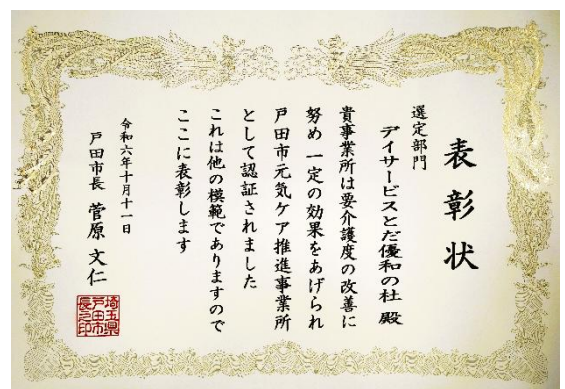 表彰状
選定部門
デイサービスとだ優和の杜 殿
貴事業所は要介護度の改善に
努め 一定の効果をあげられ
戸田市元気ケア推進事業所
として認証されました
これは他の模範でありますので
ここに表彰します
令和六年十月十一日
戸田市長 菅原文仁
埼玉県
戸田市
長之印